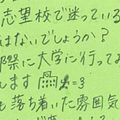 志望校で迷っている
はないでしょうか?
際に大学に行ってみ
します =3
も落ち着いた雰囲気